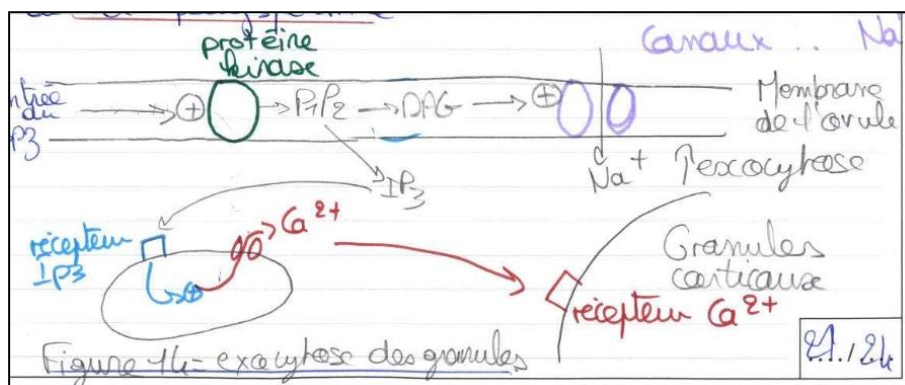 protéine
kinase
canaux .. Na
ntrée
du
P3
⊕ → PIP2 → DAG → ⊕
Membrane
de l'ovule
Na+
l'exocytose
IP3
Ca2+
récepteur
IP3
⊕
Granules
corticaux
récepteur Ca2+
Figure 14 = exocytose des granules
21../24